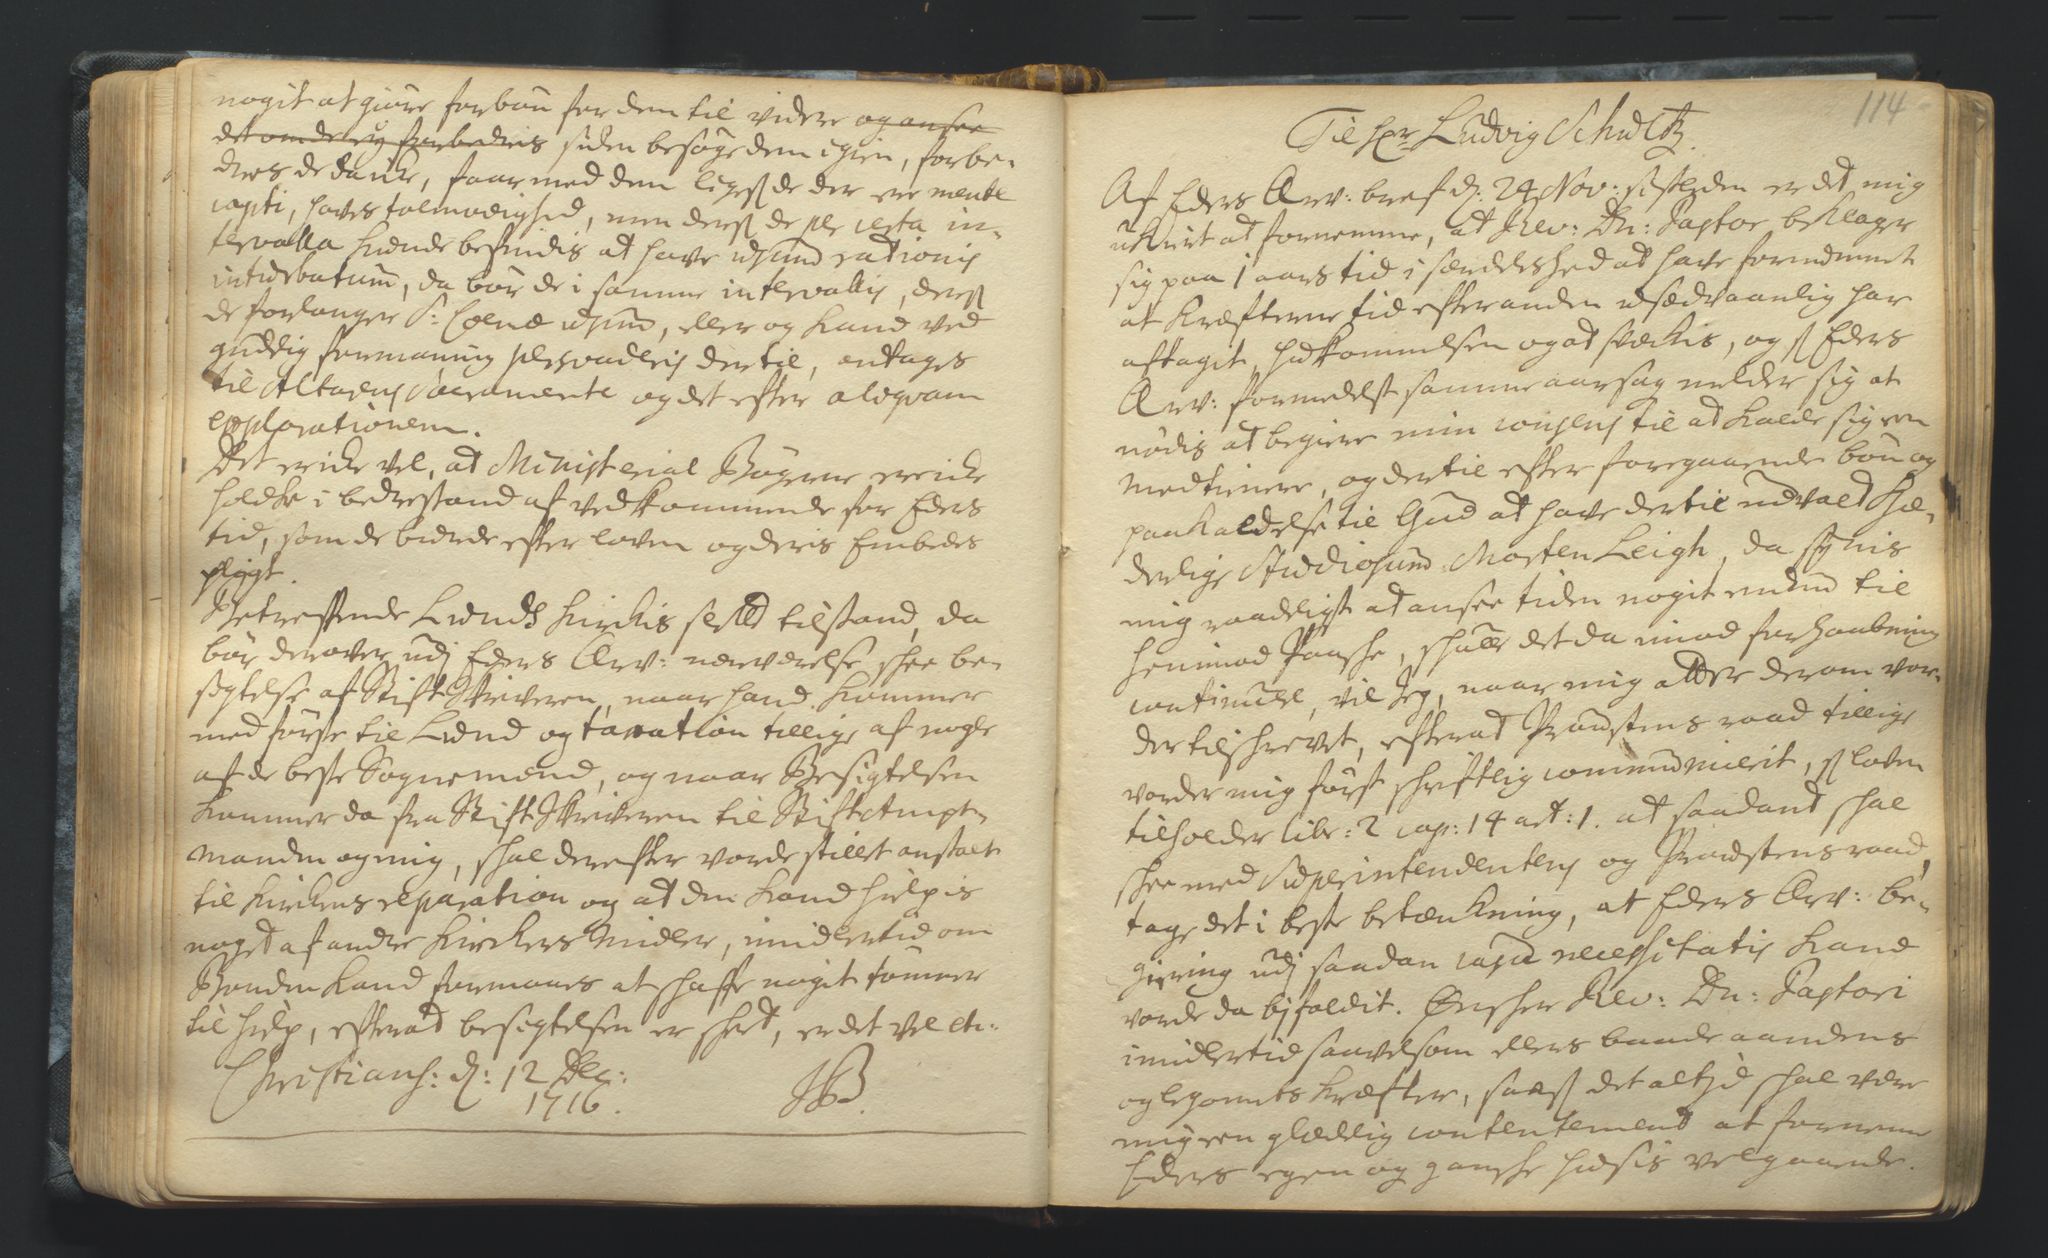 nogit at giøre forbøn for dem til videre og ansee
det om de ey forbedris siden besøge dem igien, forbe-
dres de da icke, faar med dem ligesom de der ere mente
capti, haves tolmodighed, men dersom de per certa in-
tervalla kunde befindis at have usum rationis
inturbatum, da bør de i samme intervallis, dersom
de forlanger S: Coenæ usum, eller og kand ved
guddelig formaning persvaderis dertil, antages
til Altarens Sacramente og det efter aliqvam
explorationem.
Det er icke vel, at Ministerial Bøgerne ere icke
holdte i bedre stand af vedkommende for Eders
tid, som de burde efter loven og deris Embedes
pligt.
Betreffende Lunds Kirckis slette tilstand, da
bør derover udj Eders Ærv: nærværelse skee be-
sigtelse af Stift Skriveren, naar hand kommer
med første til Lund og taxation tillige af nogle
af de beste Sognemend, og naar Besigtelsen
kommer da fra Stift Skriveren til Stift Ampt-
manden og mig, skal derefter vorde stillet anstalt
til Kirckens reparation og at den kand hielpis
noget af andre Kirckers Midler, imidlertid om
Bonden kand formaaes at skaffe nogit tømmer
til hielp, efter at besigtelsen er skeed, er det vel etc:
Christians: d: 12 Dec:
1716.
JB
114
Til Hr Ludvig Schultz.
Af Eders Ærv: bref d: 24 Nov: sistleden er det mig
ukiert at fornemme, at Rev: Dn: Pastor beklager
sig paa 1 aars tid i særdelished at have fornummet
at Kræfterne tid efter anden usædvaanlig har
aftaget, hukommelsen og at svekkis, og som Eders
Ærv: formedelst samme aarsag melder sig at
nødis at begiere min consens til at kalde sig en
medtienere, og dertil efter foregaaende bøn og
paakaldelse til Gud at have dertil udvalt Hæ-
derlige Studiosum Morten Leigh, da synis
mig raadeligst at ansee tiden nogit endnu til
henimod Paaske, skulle det da imod forhaabning
continuere, vil Jeg, naar mig atter derom vor-
der tilskrevet, efter atProustens raad tillige
vorder mig først skriftlig communicerit, som loven
tilholder libr: 2 cap: 14 art: 1. at saadant skal
skee med Superintendentens og Proustens raad,
tage det i beste betænkning, at Eders Ærv: be-
giering udj saadan casu necessitatis kand
vorde da bifaldit. Ønsker Rev: Dn: Pastori
imidlertid saavelsom ellers baade aandens
og legomets kræfter, saasom det altjd skal være
mig een glædelig contentement at fornemme
Eders egen og gandske husis velgaaende.